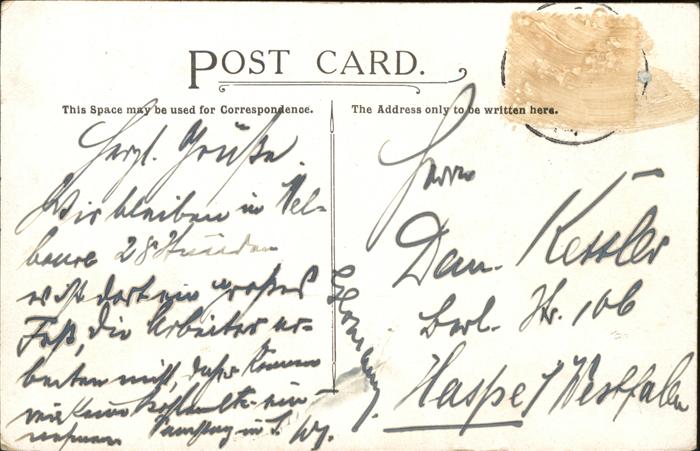 POST CARD.
This Space may be used for Correspondence.
The Address only to be written here.
Herzl. Grüße.
Wir bleiben in Mel-
bourne 28 Stunden
es ist dort ein großes
Fest, die Arbeiter ar-
beiten nicht, daher können
wir keine Kohlen etc. ein-
nehmen
Herrn
Dan. Kessler
Berl. Str. 106
Haspe / Westfalen